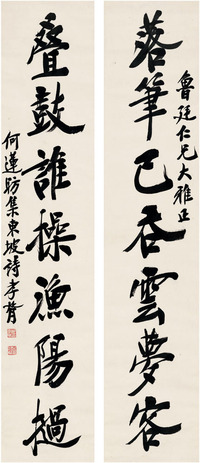 魯廷仁兄大雅正
落筆已吞雲夢客
疊鼓誰操漁陽撾
何蓮舫集東坡詩孝胥